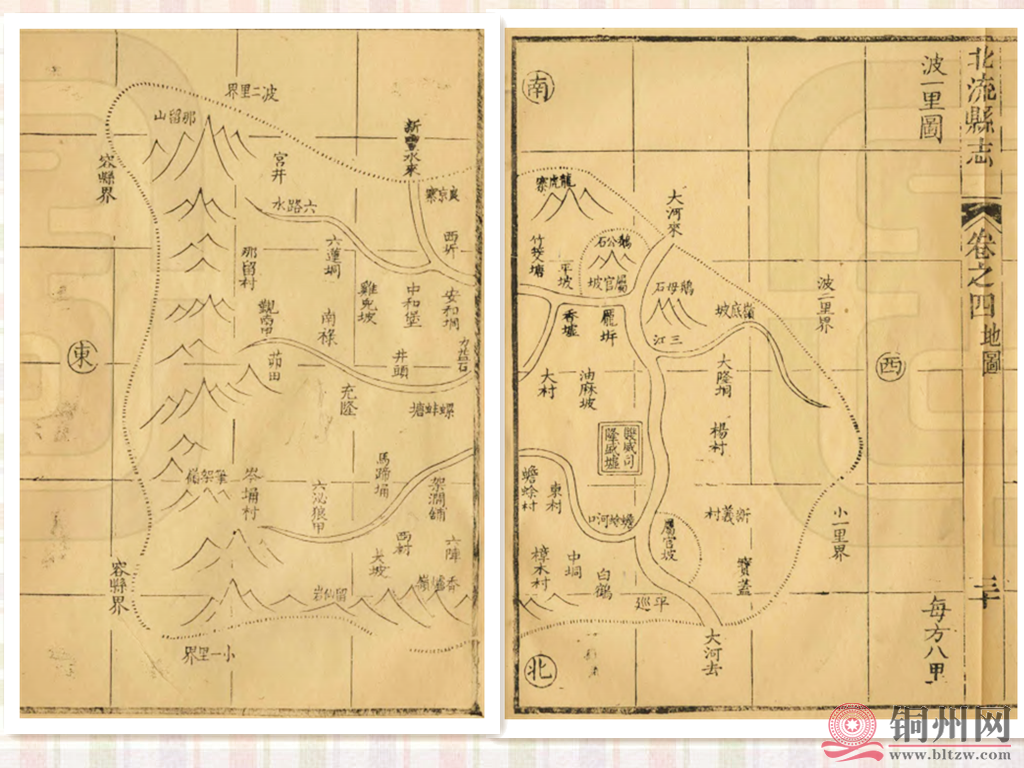 北流縣志
卷之四
地圖
三十
波一里圖
每方八甲
南
西
北
東
大河來
波二里界
龍虎寨
鵝公石
屬官坡
竹筊塘
平坡
鵝母石
嶺底坡
三江
香墟
龎垪
大隆垌
大村
油麻坡
楊村
雙威司
隆盛墟
蟾蜍村
東村
蟾蜍河口
新義村
小一里界
屬官坡
寶蓋
樟木村
中垌
白鶴
平廵
大河去
波二里界
那留山
新豐水來
容縣界
宮井
六路水
西垪
六蓮垌
那留村
雞兜坡
中和堡
安和垌
南祿
井頭
茆田
充隆
螺蚌塘
馬蹄埇
絮澗舖
筆架嶺
岑埇村
六泌狼甲
西村
六陣
大坡
香爐嶺
留仙岩
容縣界
小一里界
铜州网
www.bltzw.com